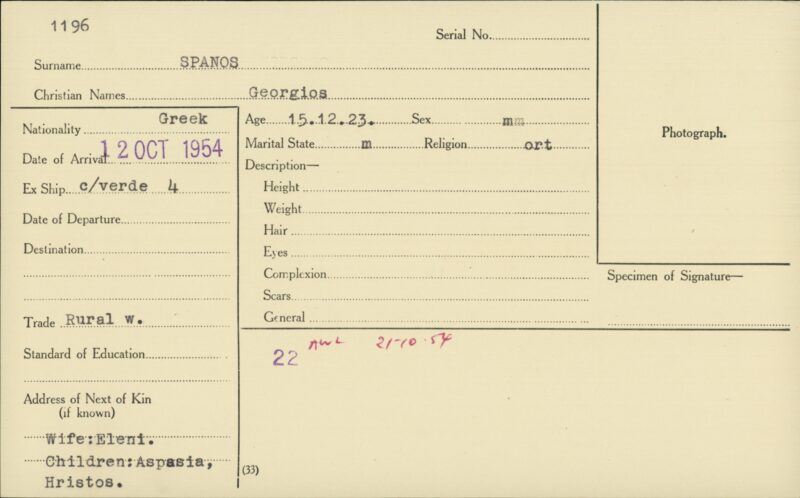 1196
Serial No.
Surname SPANOS
Christian Names Georgios
Nationality Greek
Date of Arrival 12 OCT 1954
Ex Ship c/verde 4
Date of Departure
Destination
Trade Rural w.
Standard of Education
Address of Next of Kin
(if known)
Wife:Eleni.
Children:Aspasia,
Hristos.
Age 15.12.23. Sex m
Marital State m Religion ort
Description—
Height
Weight
Hair
Eyes
Complexion
Scars
General
22 AWL 21-10-54
(33)
Photograph.
Specimen of Signature—